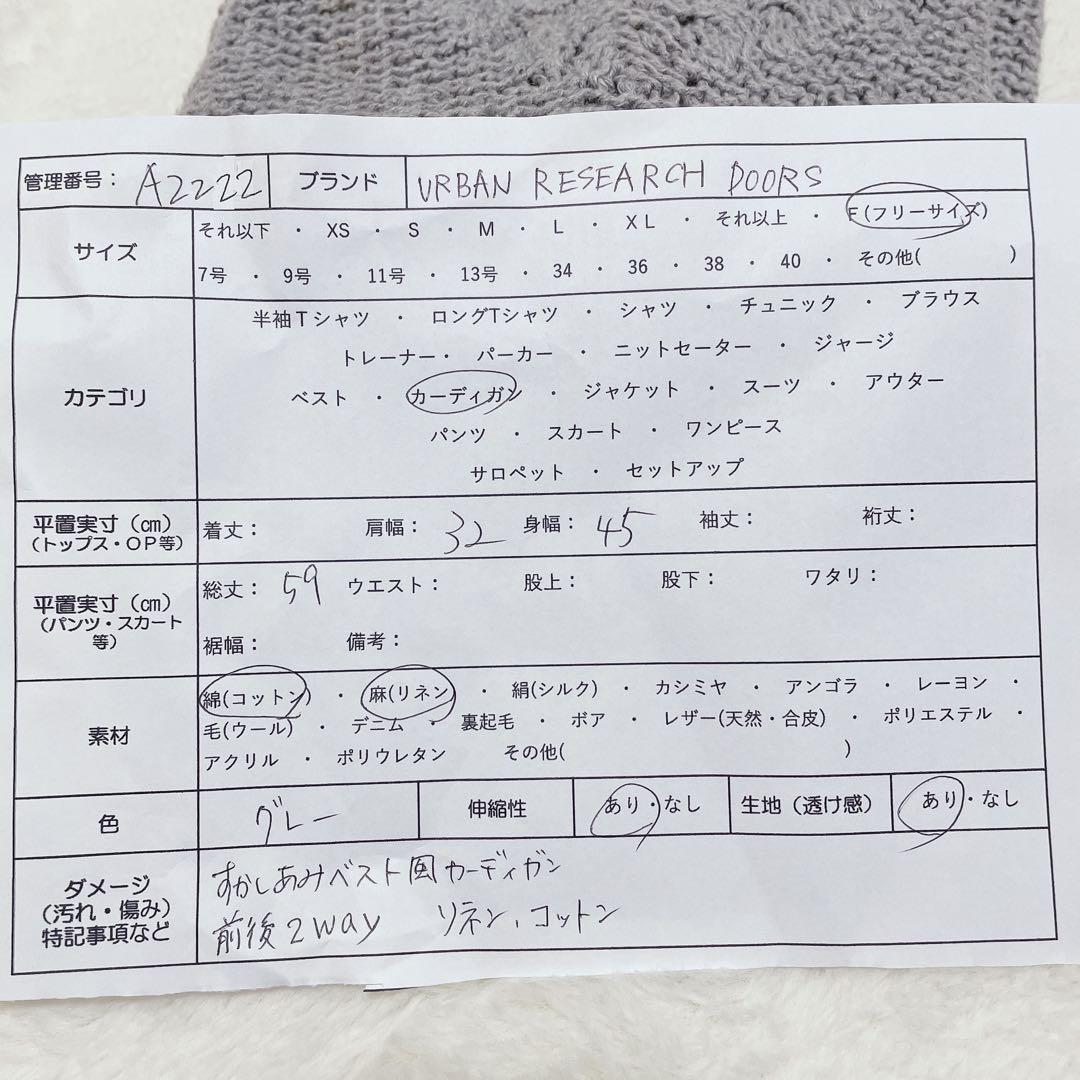 管理番号： A2222 ブランド URBAN RESEARCH DOORS
サイズ
それ以下 ・ XS ・ S ・ M ・ L ・ XL ・ それ以上 ・ F(フリーサイズ)
7号 ・ 9号 ・ 11号 ・ 13号 ・ 34 ・ 36 ・ 38 ・ 40 ・ その他( )
カテゴリ
半袖Tシャツ ・ ロングTシャツ ・ シャツ ・ チュニック ・ ブラウス
トレーナー・ パーカー ・ ニットセーター ・ ジャージ
ベスト ・ カーディガン ・ ジャケット ・ スーツ ・ アウター
パンツ ・ スカート ・ ワンピース
サロペット ・ セットアップ
平置実寸（㎝）
（トップス・OP等）
着丈： 肩幅： 32 身幅： 45 袖丈： 裄丈：
平置実寸（㎝）
（パンツ・スカート
等）
総丈： 59 ウエスト： 股上： 股下： ワタリ：
裾幅： 備考：
素材
綿(コットン) ・ 麻(リネン) ・ 絹(シルク) ・ カシミヤ ・ アンゴラ ・ レーヨン ・
毛(ウール) ・ デニム ・ 裏起毛 ・ ボア ・ レザー(天然・合皮) ・ ポリエステル ・
アクリル ・ ポリウレタン その他( )
色 グレー 伸縮性 あり・なし 生地（透け感） あり・なし
ダメージ
（汚れ・傷み）
特記事項など
すかしあみベスト風カーディガン
前後2way リネン、コットン